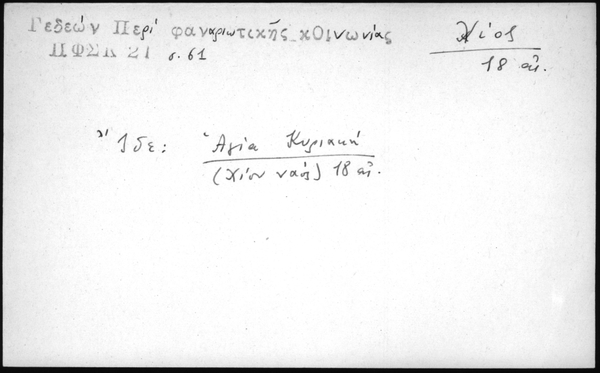 Γεδεών Περί φαναριωτικῆς κοινωνίας
ΠΦΣΚ 21 σ. 61
Χίος
18 αἰ.
Ἴδε: Ἁγία Κυριακή
(Χίου ναός) 18 αἰ.